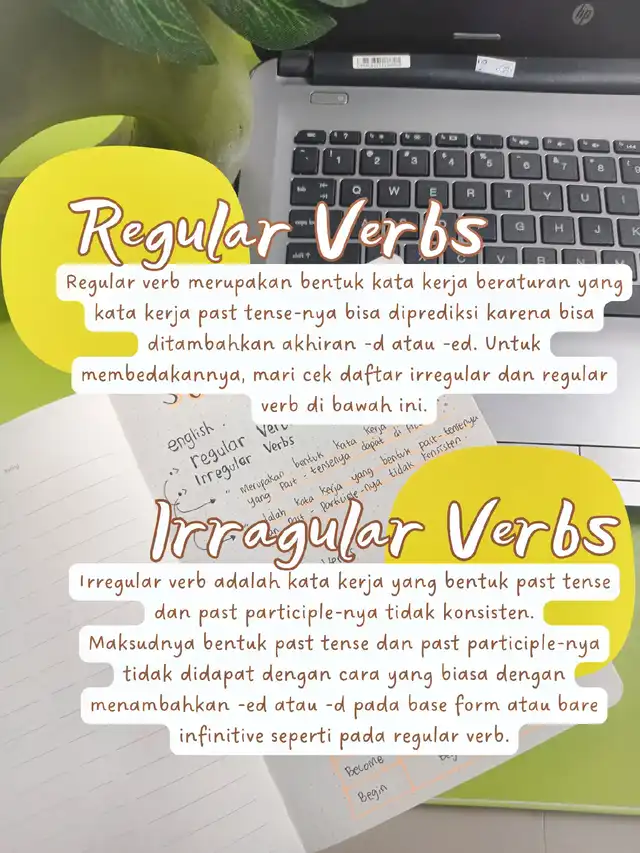 hp
Regular Verbs
Regular verb merupakan bentuk kata kerja beraturan yang
kata kerja past tense-nya bisa diprediksi karena bisa
ditambahkan akhiran -d atau -ed. Untuk
membedakannya, mari cek daftar irregular dan regular
verb di bawah ini.
english.
regular Verb
Irregular Verbs
merupakan bentuk kata kerja
yang past - tensenya dapat di
adalah kata kerja yang bentuk past-tensenya
past - participle-nya tidak konsisten.
Irragular Verbs
Irregular verb adalah kata kerja yang bentuk past tense
dan past participle-nya tidak konsisten.
Maksudnya bentuk past tense dan past participle-nya
tidak didapat dengan cara yang biasa dengan
menambahkan -ed atau -d pada base form atau bare
infinitive seperti pada regular verb.
Become
Begin